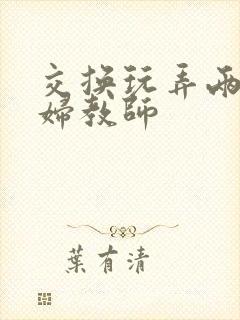 交换玩弄两
婦教師
葉有清